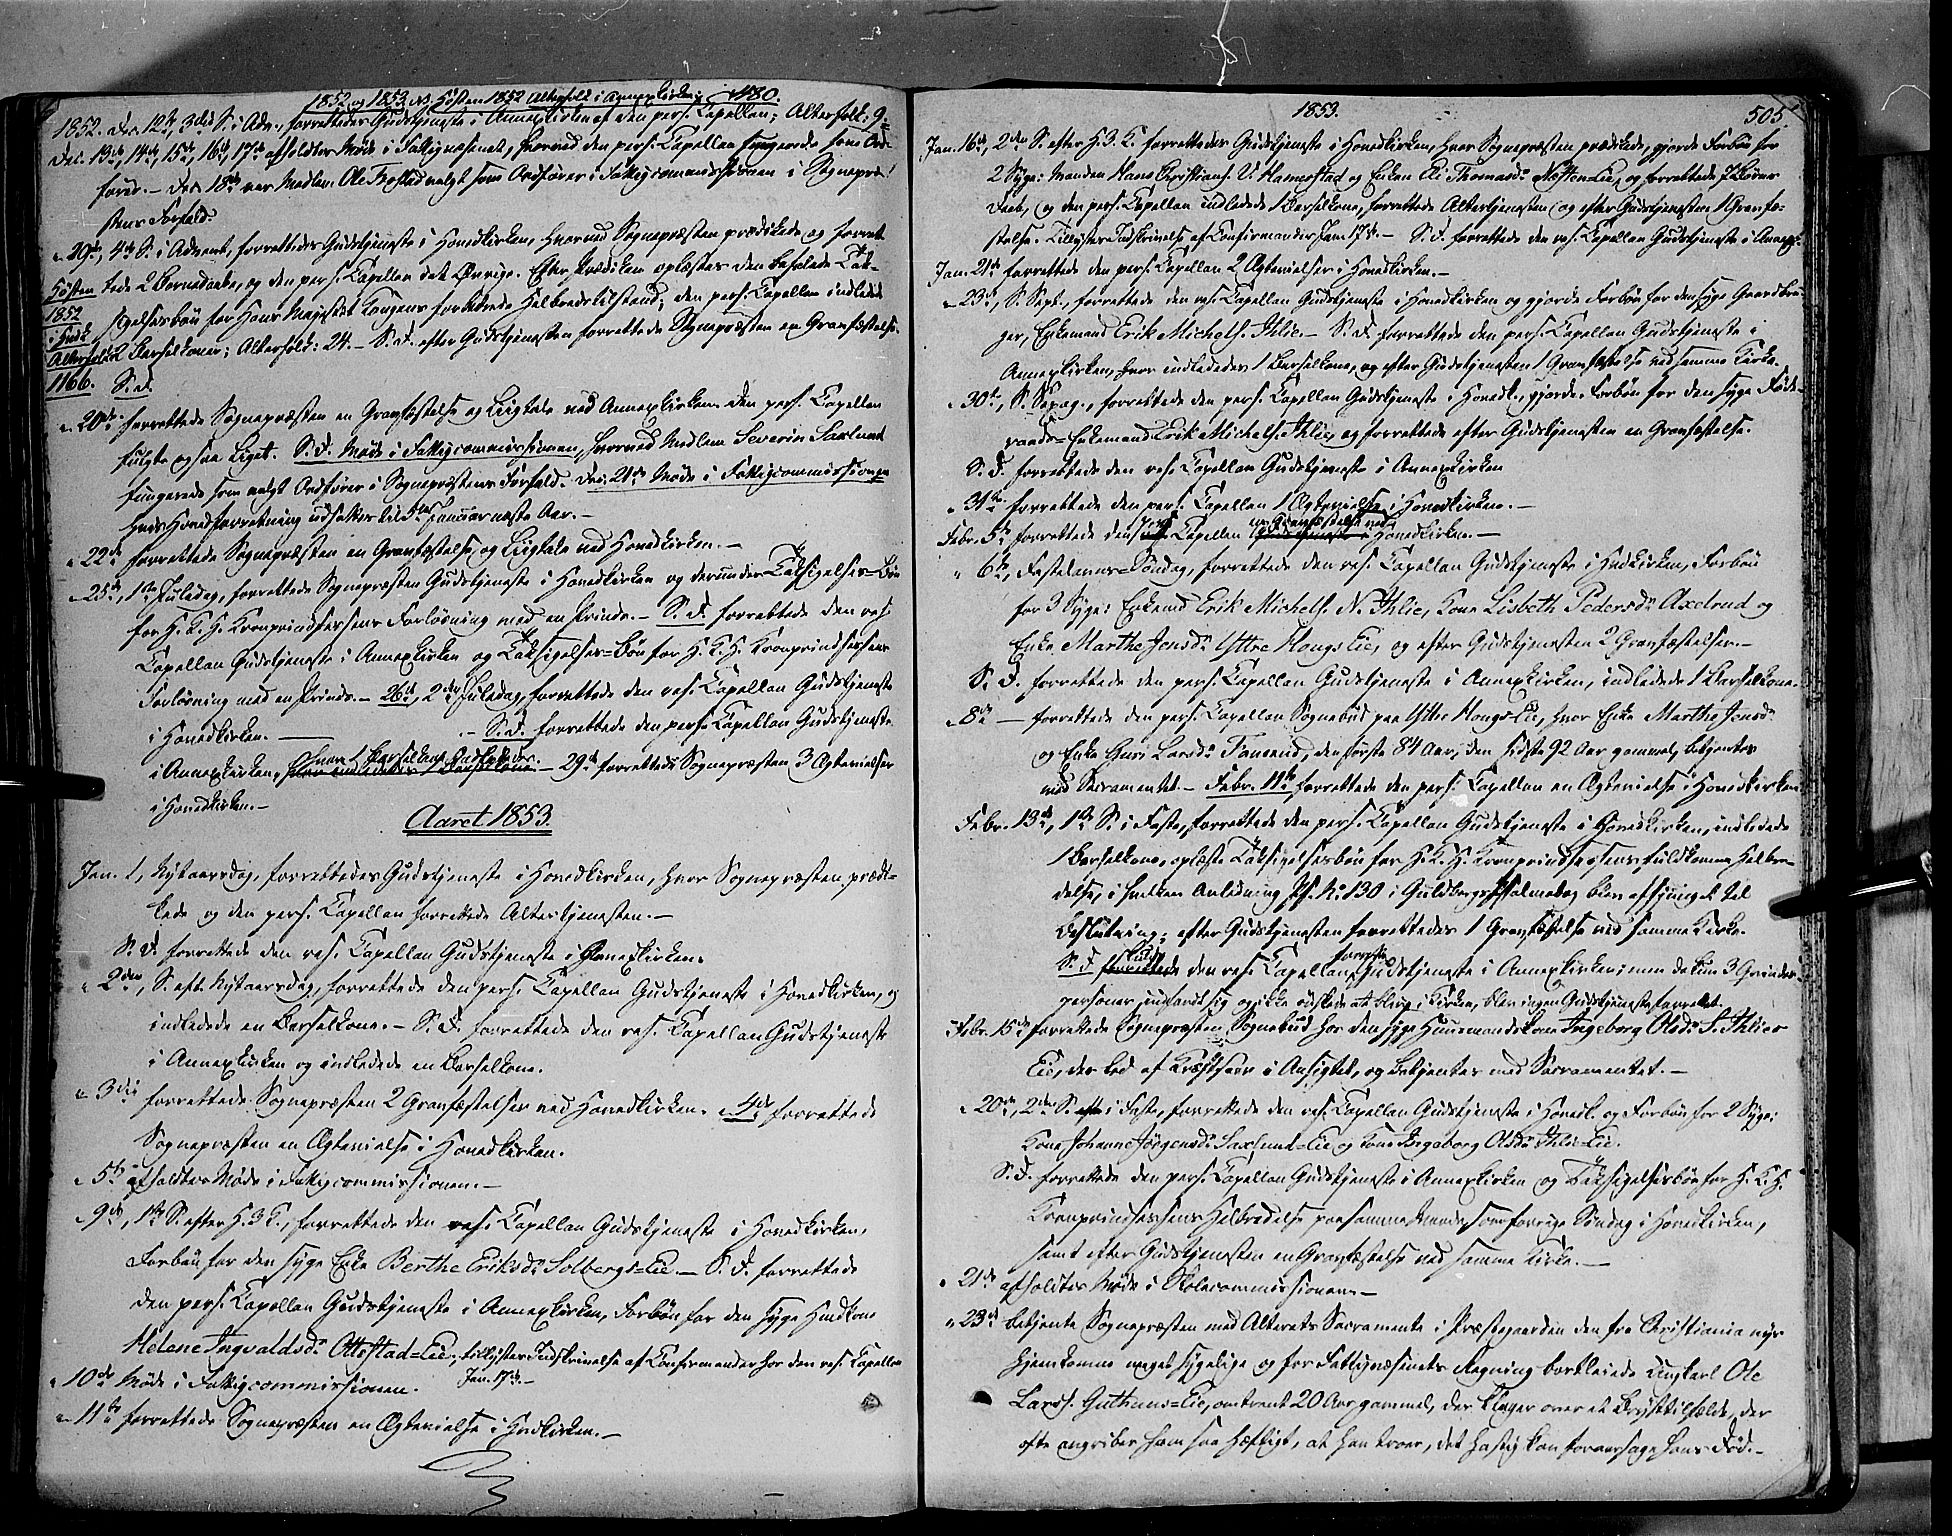 1852 og 1853. Høsten 1852 Altefolk i Annexkirken 480.
1852. Dec. 12te, 3die S. i Adv., forrettedes Gudstjeneste i Annexkirken af den pers. Capellan; Alterfolk: 9.
Dec. 13de, 14de, 15de, 16de, 17de afholdtes Møde i Fattigvæsenet, hvorved den pers. Capellan fungerede som Ord-
fører. — Dec. 18de var Medlem Ole Træstad valgt som Ordfører i Fattigcommissionen i Sognepræ-
stens Forfald.
" 19de, 4de S. i Advent, forrettedes Gudstjeneste i Hovedkirken, hvorved Sognepræsten prædikede og forret-
Høsten tede 2 Barnedaabe, og den pers. Capellan det Øvrige. Efter Prædiken oplæstes den befalede Tak-
1852 sigelsesbøn for Hans Majestæt Kongens forbedrede Helbredstilstand; den pers. Capellan indledede
i Hvdk. Alterfolk 2 Barselkoner; Alterfolk: 24. — S. D. efter Gudstjenesten forrettede Sognepræsten en Gravfæstelse.
1166. S. D.
" 20de forrettede Sognepræsten en Gravfæstelse og Liigtale ved Annexkirken. Den pers. Capellan
fulgte ogsaa Liget. S. D. Møde i Fattigcommissionen, hvorved Medlem Severin Saxlund
fungerede som valgt Ordfører i Sognepræstens Forfald. Dec. 21de Møde i Fattigcommissionen
hvis Hovedforretning udsattes til Januar næste Aar. —
" 22de forrettede Sognepræsten en Gravfæstelse og Liigtale ved Hovedkirken. —
" 25de, 1ste Juledag, forrettede Sognepræsten Gudstjeneste i Hovedkirken og derunder Taksigelses-Bøn
for H. K. H. Kronprindsessens Forløsning med en Prinds. — S. D. forrettede den res.
Capellan Gudstjeneste i Annexkirken og Taksigelses-Bøn for H. K. H. Kronprindsessens
Forløsning med en Prinds. — 26de, 2den Juledag, forrettede den res. Capellan Gudstjeneste
i Hovedkirken. — S. D. forrettede den pers. Capellan Gudstjeneste
i Annexkirken, hvor 1 Barselkone indlededes. — 29de forrettede Sognepræsten 3 Ægtevielser
i Hovedkirken. —
Aaret 1853.
Jan. 1, Nytaarsdag, forrettedes Gudstjeneste i Hovedkirken, hvor Sognepræsten prædi-
kede og den pers. Capellan forrettede Altertjenesten. —
S. D. forrettede den res. Capellan Gudstjeneste i Annexkirken.
" 2den, S. eft. Nytaarsdag, forrettede den pers. Capellan Gudstjeneste i Hovedkirken, og
indledede en Barselkone. — S. D. forrettede den res. Capellan Gudstjeneste
i Annexkirken og indledede en Barselkone.
" 3die forrettede Sognepræsten 2 Gravfæstelser ved Hovedkirken. " 4de forrettede
Sognepræsten en Ægtevielse i Hovedkirken.
" 5te afholdtes Møde i Fattigcommissionen. —
" 9de, 1ste S. efter H. 3 K., forrettede den res. Capellan Gudstjeneste i Hovedkirken,
Forbøn for den syge Enke Berthe Eriksdr. Solbergs=Eie. — S. D. forrettede
den pers. Capellan Gudstjeneste i Annexkirken, Forbøn for den syge Huuskone
Helene Ingvaldsdr. Ottestad=Eie; tillystes Indskrivelse af Confirmander hos den res. Capellan
Jan. 17de. —
" 10de Møde i Fattigcommissionen.
" 11te forrettede Sognepræsten en Ægtevielse i Hvdkirken. —
1853. 505
Jan. 16de, 2den S. efter H. 3 K. forrettedes Gudstjeneste i Hovedkirken, hvor Sognepræsten prædikede, gjorde Forbøn for
2 Syge: Manden Hans Christians. U. Hammerstad og Enken Eli Thomasdr. Næsten=Eie, og forrettede Børne-
daab, og den pers. Capellan indledede 1 Barselkone, forrettede Altertjenesten og efter Gudstjenesten 1 Gravfæ-
stelse. Tillystes Indskrivelse af Confirmander Jan. 17de. — S. D. forrettede den res. Capellan Gudstjeneste i Annexk.
Jan. 21de forrettede den pers. Capellan 2 Ægtevielser i Hovedkirken. —
" 23de, S. Sept., forrettede den res. Capellan Gudstjeneste i Hovedkirken og gjorde Forbøn for den syge Gaardbru-
ger, Enkemand Erik Michels. Ihlie. — S. D. forrettede den pers. Capellan Gudstjeneste i
Annexkirken, hvor indlededes 1 Barselkone, og efter Gudstjenesten 1 Gravfæstelse ved samme Kirke.
" 30te, S. Sexag., forrettede den pers. Capellan Gudstjeneste i Hovedk., gjorde Forbøn for den syge Føde-
raads=Enkemand Erik Michels. Ihlie, og forrettede efter Gudstjenesten en Gravfæstelse.
S. D. forrettede den res. Capellan Gudstjeneste i Annexkirken
" 31te forrettede den pers. Capellan 1 Ægtevielse i Hovedkirken. —
Febr. 5te forrettede den pers. Capellan en Gravfæstelse ved Hovedkirken. —
" 6te, Fastelavns=Søndag, forrettede den res. Capellan Gudstjeneste i Hvdkirken, Forbøn
for 3 Syge: Enkemd. Erik Michels. N. Ihlie, Kone Lisbeth Pedersdr. Axelrud og
Enke Marthe Jensdr. Yttre Hougs Eie, og efter Gudstjenesten 2 Gravfæstelser. —
S. D. forrettede den pers. Capellan Gudstjeneste i Annexkirken, indledede 1 Barselkone.
" 8de — forrettede den pers. Capellan Sognebud paa Yttre Hougs Eie, hvor Enke Marthe Jensdr.
og Enke Guri Larsdr. Tanserud, den første 84 Aar, den sidste 92 Aar gammel, betjentes
med Sacramentet. — Febr. 11te forrettede den pers. Capellan en Ægtevielse i Hovedkirken
Febr. 13de, 1ste S. i Faste, forrettede den pers. Capellan Gudstjeneste i Hovedkirken, indledede
1 Barselkone, oplæste Taksigelsesbøn for H. K. H. Kronprindsessens fuldkomne Helbre-
delse, i hvilken Anledning Ps. No. 130 i Guldbergs Psalmebog blev afsjunget til
Beslutning; efter Gudstjenesten forrettedes 1 Gravfæstelse ved samme Kirke.
S. D. skulde den res. Capellan forrette Gudstjeneste i Annexkirken; men da kun 3 Qvinde-
personer indfandt sig og ikke ønskede at blive i Kirken, blev ingen Gudstjeneste forrettet.
Febr. 15de forrettede Sognepræsten Sognebud hos den syge Huusmandskone Ingeborg Olsdr. S. Ihlies
Eie, der led af Kræftsaar i Ansigtet, og betjentes med Sacramentet. —
" 20de, 2den S. i Faste, forrettede den res. Capellan Gudstjeneste i Hovedk. og Forbøn for 2 Syge:
Kone Johanne Jørgensdr. Saxlund=Eie og Kone Ingeborg Olsdr. Ihlie=Eie.
S. D. forrettede den pers. Capellan Gudstjeneste i Annexkirken og Taksigelsesbøn for H. K. H.
Kronprindsessens Helbredelse paa samme Maade som forrige Søndag i Hovedkirken,
samt efter Gudstjenesten en Gravfæstelse ved samme Kirke. —
" 21de afholdtes Møde i Skolecommissionen. —
" 23de betjente Sognepræsten med Alterets Sacramente i Præstegaarden den fra Christiania nys
hjemkomne meget sygelige og for Fattigvæsenets Regning bortleiede Ungkarl Ole
Lars. Guthuus=Eie, omtrent 20 Aar gammel, der klager over et Brysttilfælde, der
ofte angriber ham saa hæftigt, at han troer, det hastig kan foraarsage hans Død. —